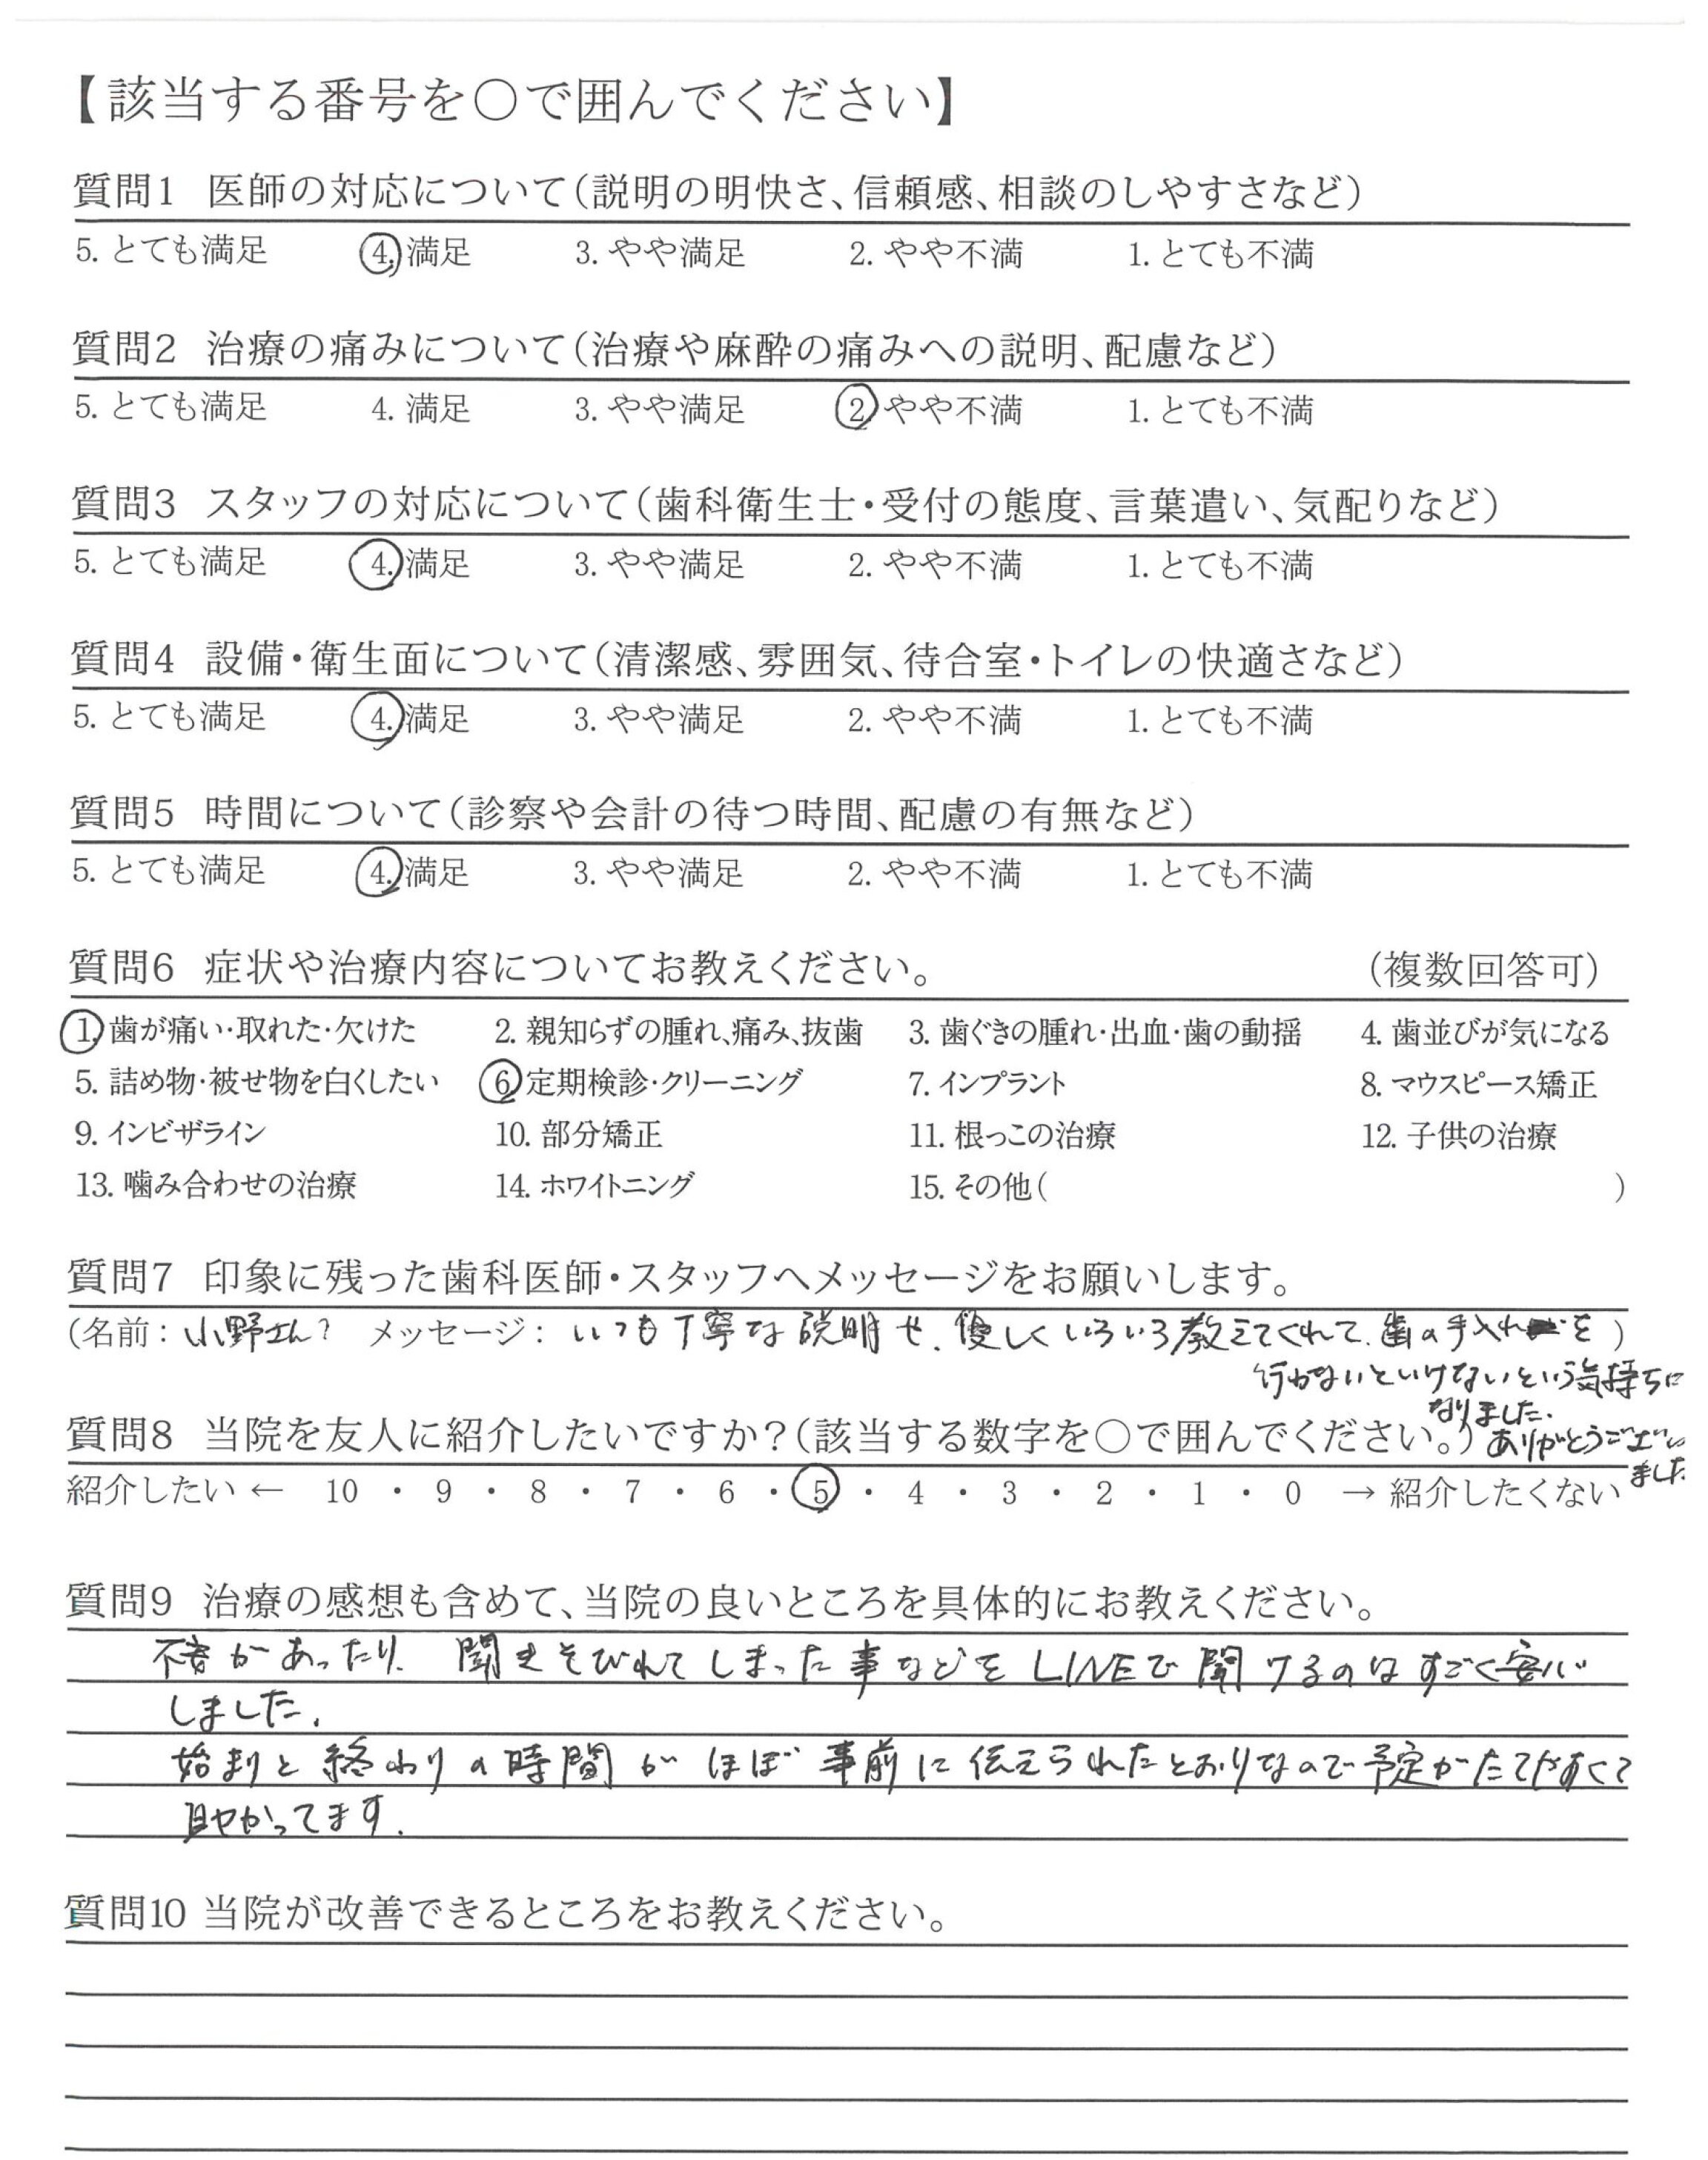 【該当する番号を○で囲んでください】
質問1 医師の対応について(説明の明快さ、信頼感、相談のしやすさなど)
5. とても満足 4. 満足 3. やや満足 2. やや不満 1. とても不満
質問2 治療の痛みについて(治療や麻酔の痛みへの説明、配慮など)
5. とても満足 4. 満足 3. やや満足 2 やや不満 1. とても不満
質問3 スタッフの対応について(歯科衛生士・受付の態度、言葉遣い、気配りなど)
5. とても満足 4. 満足 3. やや満足 2. やや不満 1. とても不満
質問4 設備・衛生面について(清潔感、雰囲気、待合室・トイレの快適さなど)
5. とても満足 4. 満足 3. やや満足 2. やや不満 1. とても不満
質問5 時間について(診察や会計の待つ時間、配慮の有無など)
5. とても満足 4. 満足 3. やや満足 2. やや不満 1. とても不満
質問6 症状や治療内容についてお教えください。 (複数回答可)
1. 歯が痛い・取れた・欠けた 2. 親知らずの腫れ、痛み、抜歯 3. 歯ぐきの腫れ・出血・歯の動揺 4. 歯並びが気になる
5. 詰め物・被せ物を白くしたい 6 定期検診・クリーニング 7. インプラント 8. マウスピース矯正
9. インビザライン 10. 部分矯正 11. 根っこの治療 12. 子供の治療
13. 噛み合わせの治療 14. ホワイトニング 15. その他( )
質問7 印象に残った歯科医師・スタッフへメッセージをお願いします。
(名前: 小野さん? メッセージ: いつも丁寧な説明や、優しくいろいろ教えてくれて、歯の手入れを )
行わないといけないという気持ちに
なりました.
質問8 当院を友人に紹介したいですか?(該当する数字を○で囲んでください。) ありがとうござい
ました
紹介したい ← 10 ・ 9 ・ 8 ・ 7 ・ 6 ・ 5 ・ 4 ・ 3 ・ 2 ・ 1 ・ 0 → 紹介したくない
質問9 治療の感想も含めて、当院の良いところを具体的にお教えください。
があったり、聞きそびれてしまった事などをLINEで聞けるのはすごく安心
しました.
始まりと終わりの時間がほぼ事前に伝えられたとおりなので予定がたてやすくて
助かってます.
質問10 当院が改善できるところをお教えください。